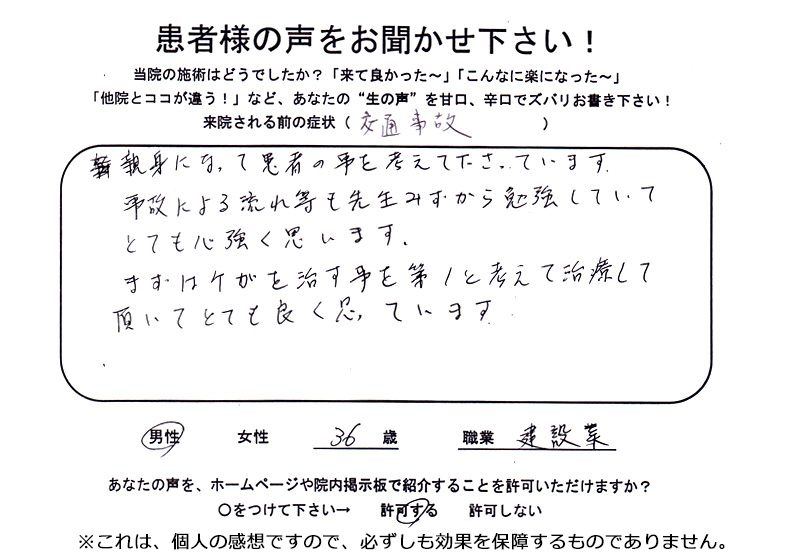 患者様の声をお聞かせ下さい！
当院の施術はどうでしたか？「来て良かった～」「こんなに楽になった～」
「他院とココが違う！」など、あなたの“生の声”を甘口、辛口でズバリお書き下さい！
来院される前の症状（ 交通事故 ）
親身になって患者の事を考えて下さっています。
事故による流れ等も先生みずから勉強していて
とても心強く思います。
まずはケガを治す事を第1と考えて治療して
頂いてとても良く思っています
男性 女性 36 歳 職業 建設業
あなたの声を、ホームページや院内掲示板で紹介することを許可いただけますか？
〇をつけて下さい→ 許可する 許可しない
※これは、個人の感想ですので、必ずしも効果を保障するものでありません。